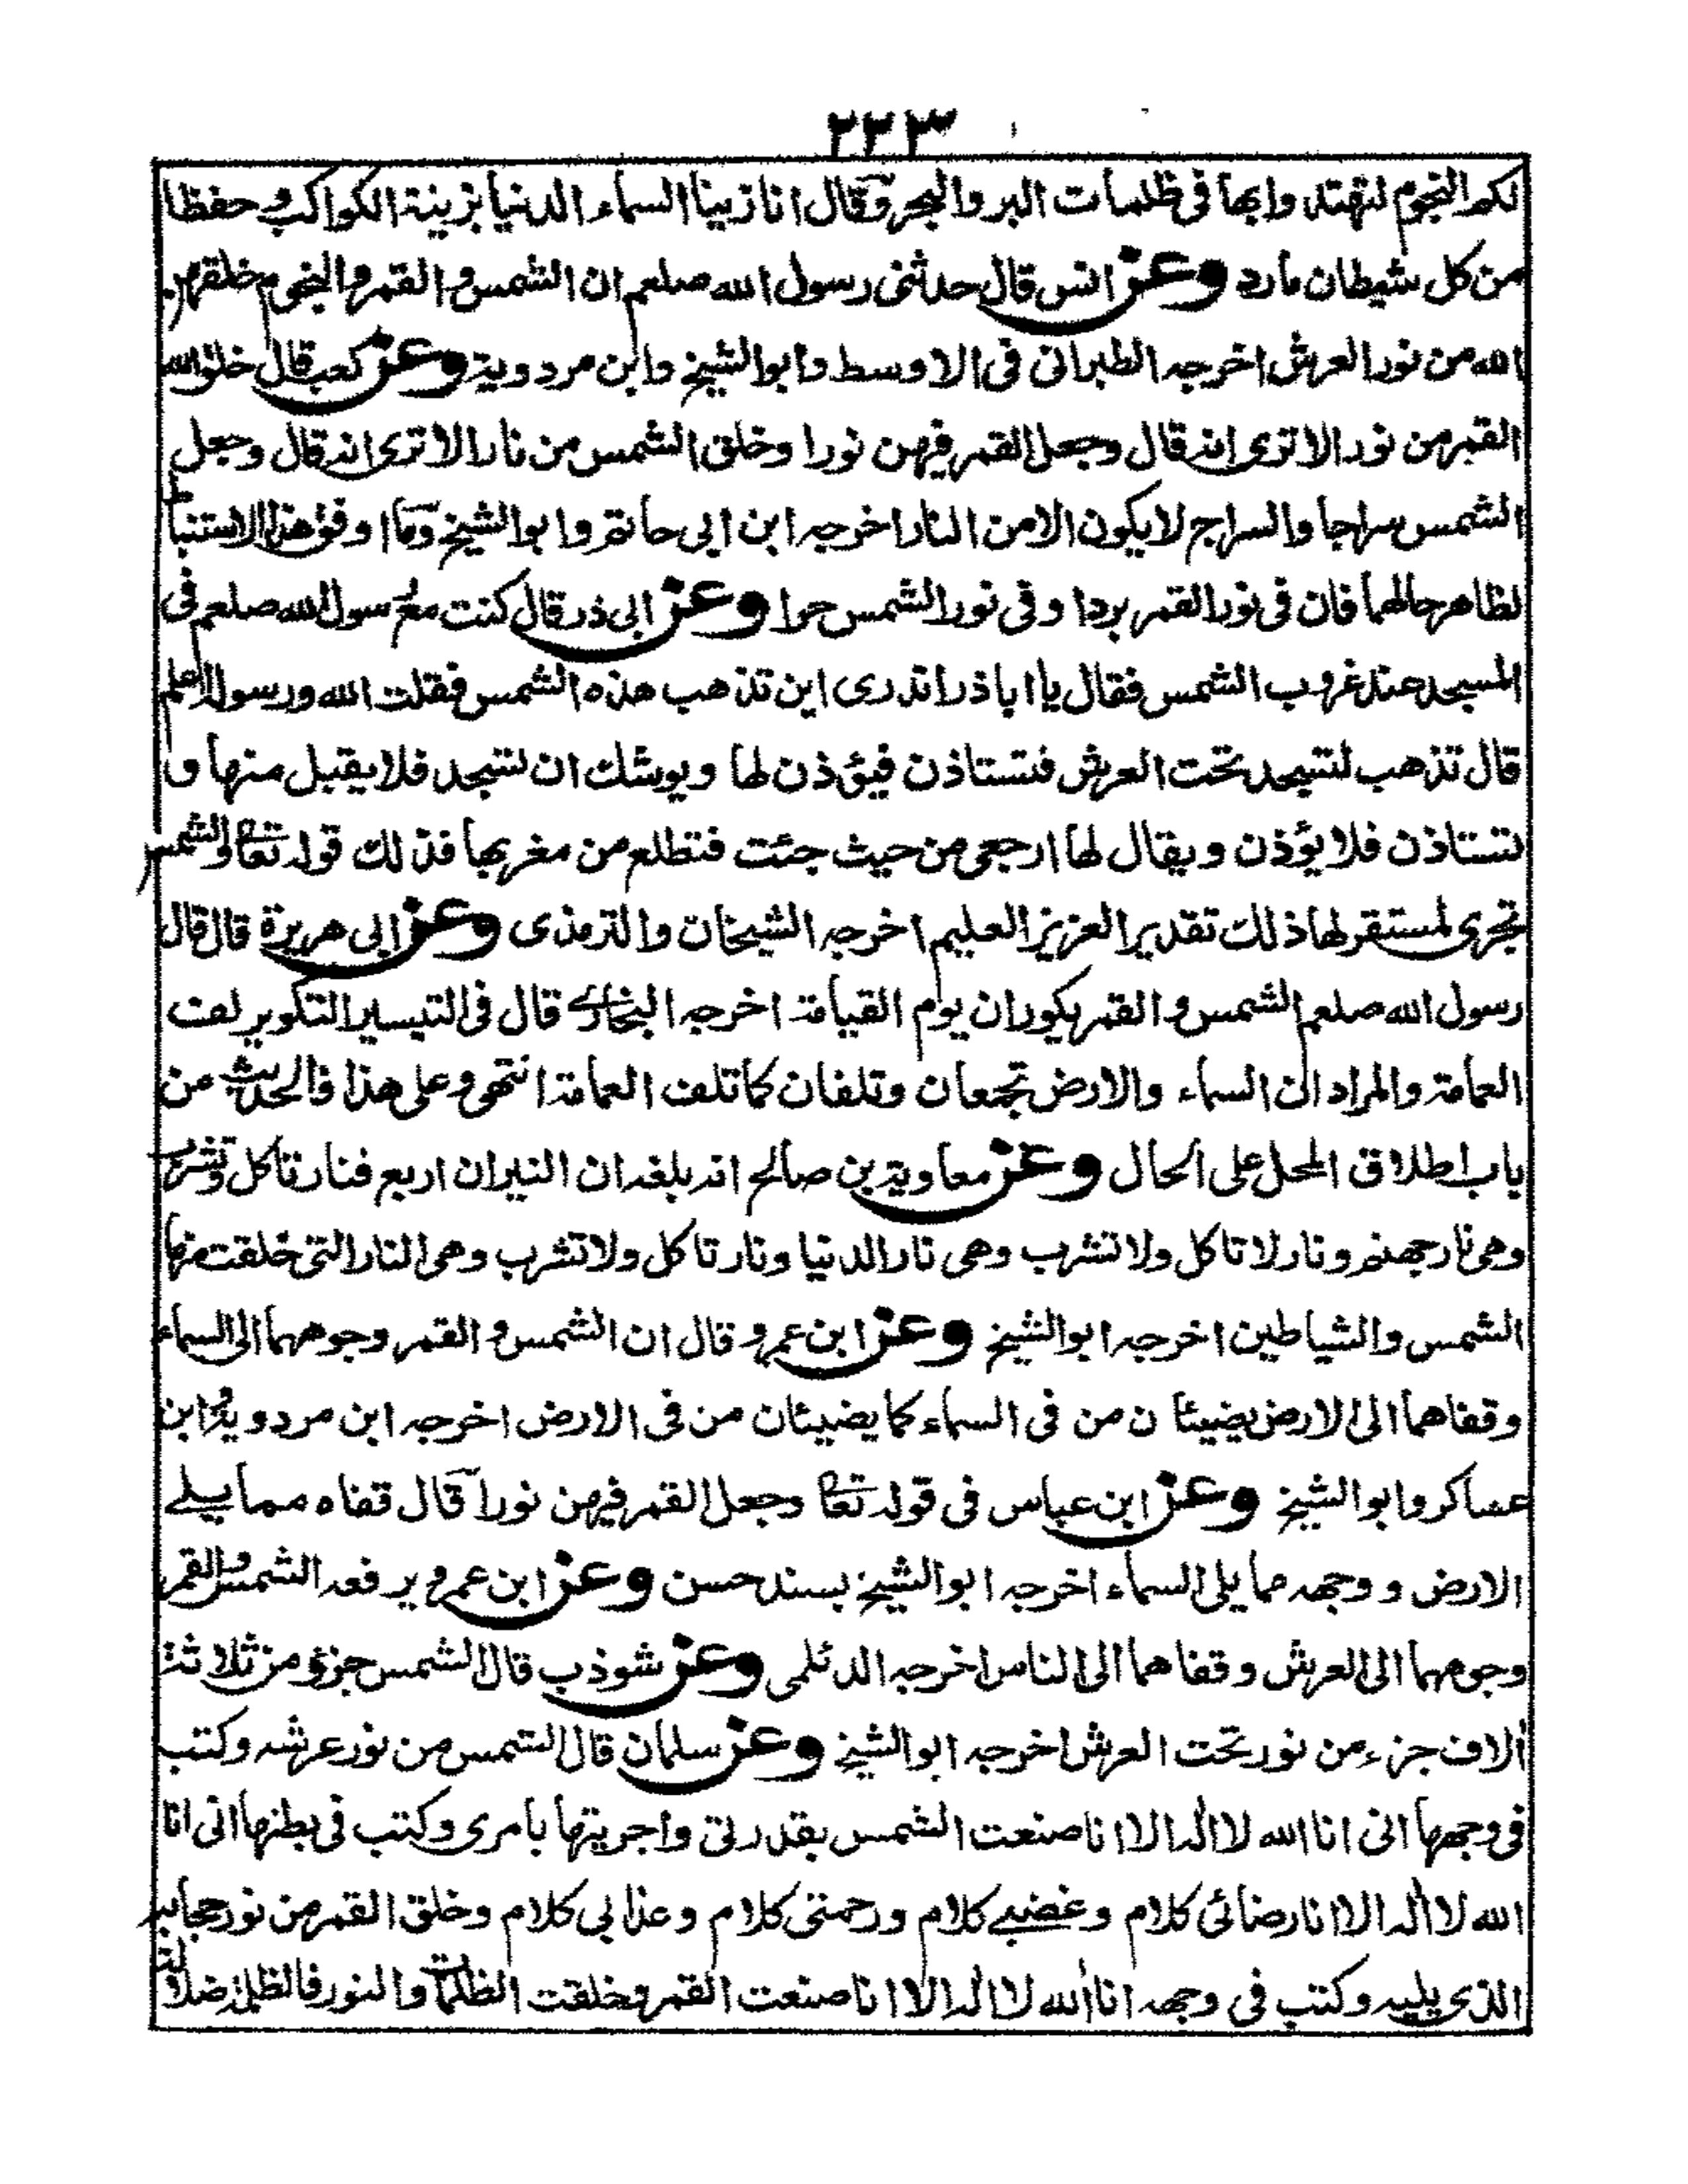 ٢٢٣
لكم النجوم لتهتدوا بها فى ظلمات البر والبحر وقال انا زينا السماء الدنيا بزينة الكواكب وحفظا
من كل شيطان مارد وعن انس قال حدثنى رسول الله صلعم ان الشمس والقمر والنجوم خلقهن
الله من نور العرش اخرجه الطبرانى فى الاوسط وابو الشيخ وابن مردويه وعن كعب قال خلق الله
القمر من نور الا ترى انه قال وجعل القمر فيهن نورا وخلق الشمس من نار الا ترى انه قال وجعل
الشمس سراجا والسراج لا يكون الا من النار اخرجه ابن ابى حاتم وابو الشيخ وما اوفق هذا الاستنباط
لظاهر حالهما فان فى نور القمر بردا وفى نور الشمس حرا وعن ابى ذر قال كنت مع رسول الله صلعم فى
المسجد عند غروب الشمس فقال يا ابا ذر اتدرى اين تذهب هذه الشمس فقلت الله ورسوله اعلم
قال تذهب لتسجد تحت العرش فتستاذن فيؤذن لها ويوشك ان تسجد فلا يقبل منها و
تستاذن فلا يؤذن ويقال لها ارجعى من حيث جئت فتطلع من مغربها فذلك قوله تعالى والشمس
تجرى لمستقر لها ذلك تقدير العزيز العليم اخرجه الشيخان والترمذى وعن ابى هريرة قال قال
رسول الله صلعم الشمس والقمر يكوران يوم القيامة اخرجه البخارى قال فى التيسير التكوير لف
العمامة والمراد ان السماء والارض تجمعان وتلفان كما تلف العمامة انتهى وعلى هذا فالحديث من
باب اطلاق المحل على الحال وعن معاوية بن صالح انه بلغه ان النيران اربع فنار تاكل وتشرب
وهى نار جهنم ونار لا تاكل ولا تشرب وهى نار الدنيا ونار تاكل ولا تشرب وهى النار التى خلقت منها
الشمس والشياطين اخرجه ابو الشيخ وعن ابن عمرو قال ان الشمس والقمر وجوههما الى السماء
وقفاهما الى الارض يضيئان من فى السماء كما يضيئان من فى الارض اخرجه ابن مردويه وابن
عساكر وابو الشيخ وعن ابن عباس فى قوله تعالى وجعل القمر فيهن نورا قال قفاه مما يلى
الارض ووجهه مما يلى السماء اخرجه ابو الشيخ بسند حسن وعن ابن عمرو يرفعه الشمس والقمر
وجوههما الى العرش وقفاهما الى الناس اخرجه الدئلمى وعن شوذب قال الشمس جزؤ من ثلاثة
آلاف جزء من نور تحت العرش اخرجه ابو الشيخ وعن سلمان قال الشمس من نور عرشه وكتب
فى وجهها انى انا الله لا اله الا انا صنعت الشمس بقدرتى واجريتها بامرى وكتب فى بطنها انى انا
الله لا اله الا انا رضائى كلام وغضبى كلام ورحمتى كلام وعذابى كلام وخلق القمر من نور حجابه
الذى يليه وكتب فى وجهه انا الله لا اله الا انا صنعت القمر وخلقت الظلمات والنور فالظلمة ضلالة